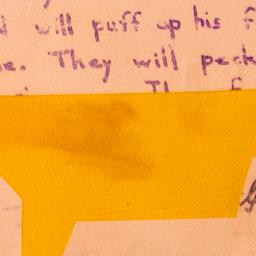 will puff up his f
e. They will peck
Th